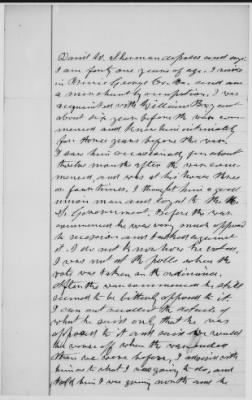 David W. Sherman deposes and says
I am forty one years of age. I reside
in Prince George Co. Va. and am
a merchant by occupation, I was
acquainted with William Bryant
about six years before the war com-
menced and knew him intimately
for three years before the war,
I saw him occasionally for about
twelve month after the war com-
menced, and was at his house three
or four times, I thought him a good
union man and loyal to the
U. S. Government. Before the war
commenced he was very much opposed
to secession and talked against
it. I do not know how he voted,
I was not at the polls when the
vote was taken on the ordinance.
After the war commenced he still
seemed to be bitterly opposed to it.
I can not recollect the details of
what he said only that he was
opposed to it and said we would
be worse off when the war ended
than we were before, I advised with
him as to what I was going to do, and
told him I was going north and he